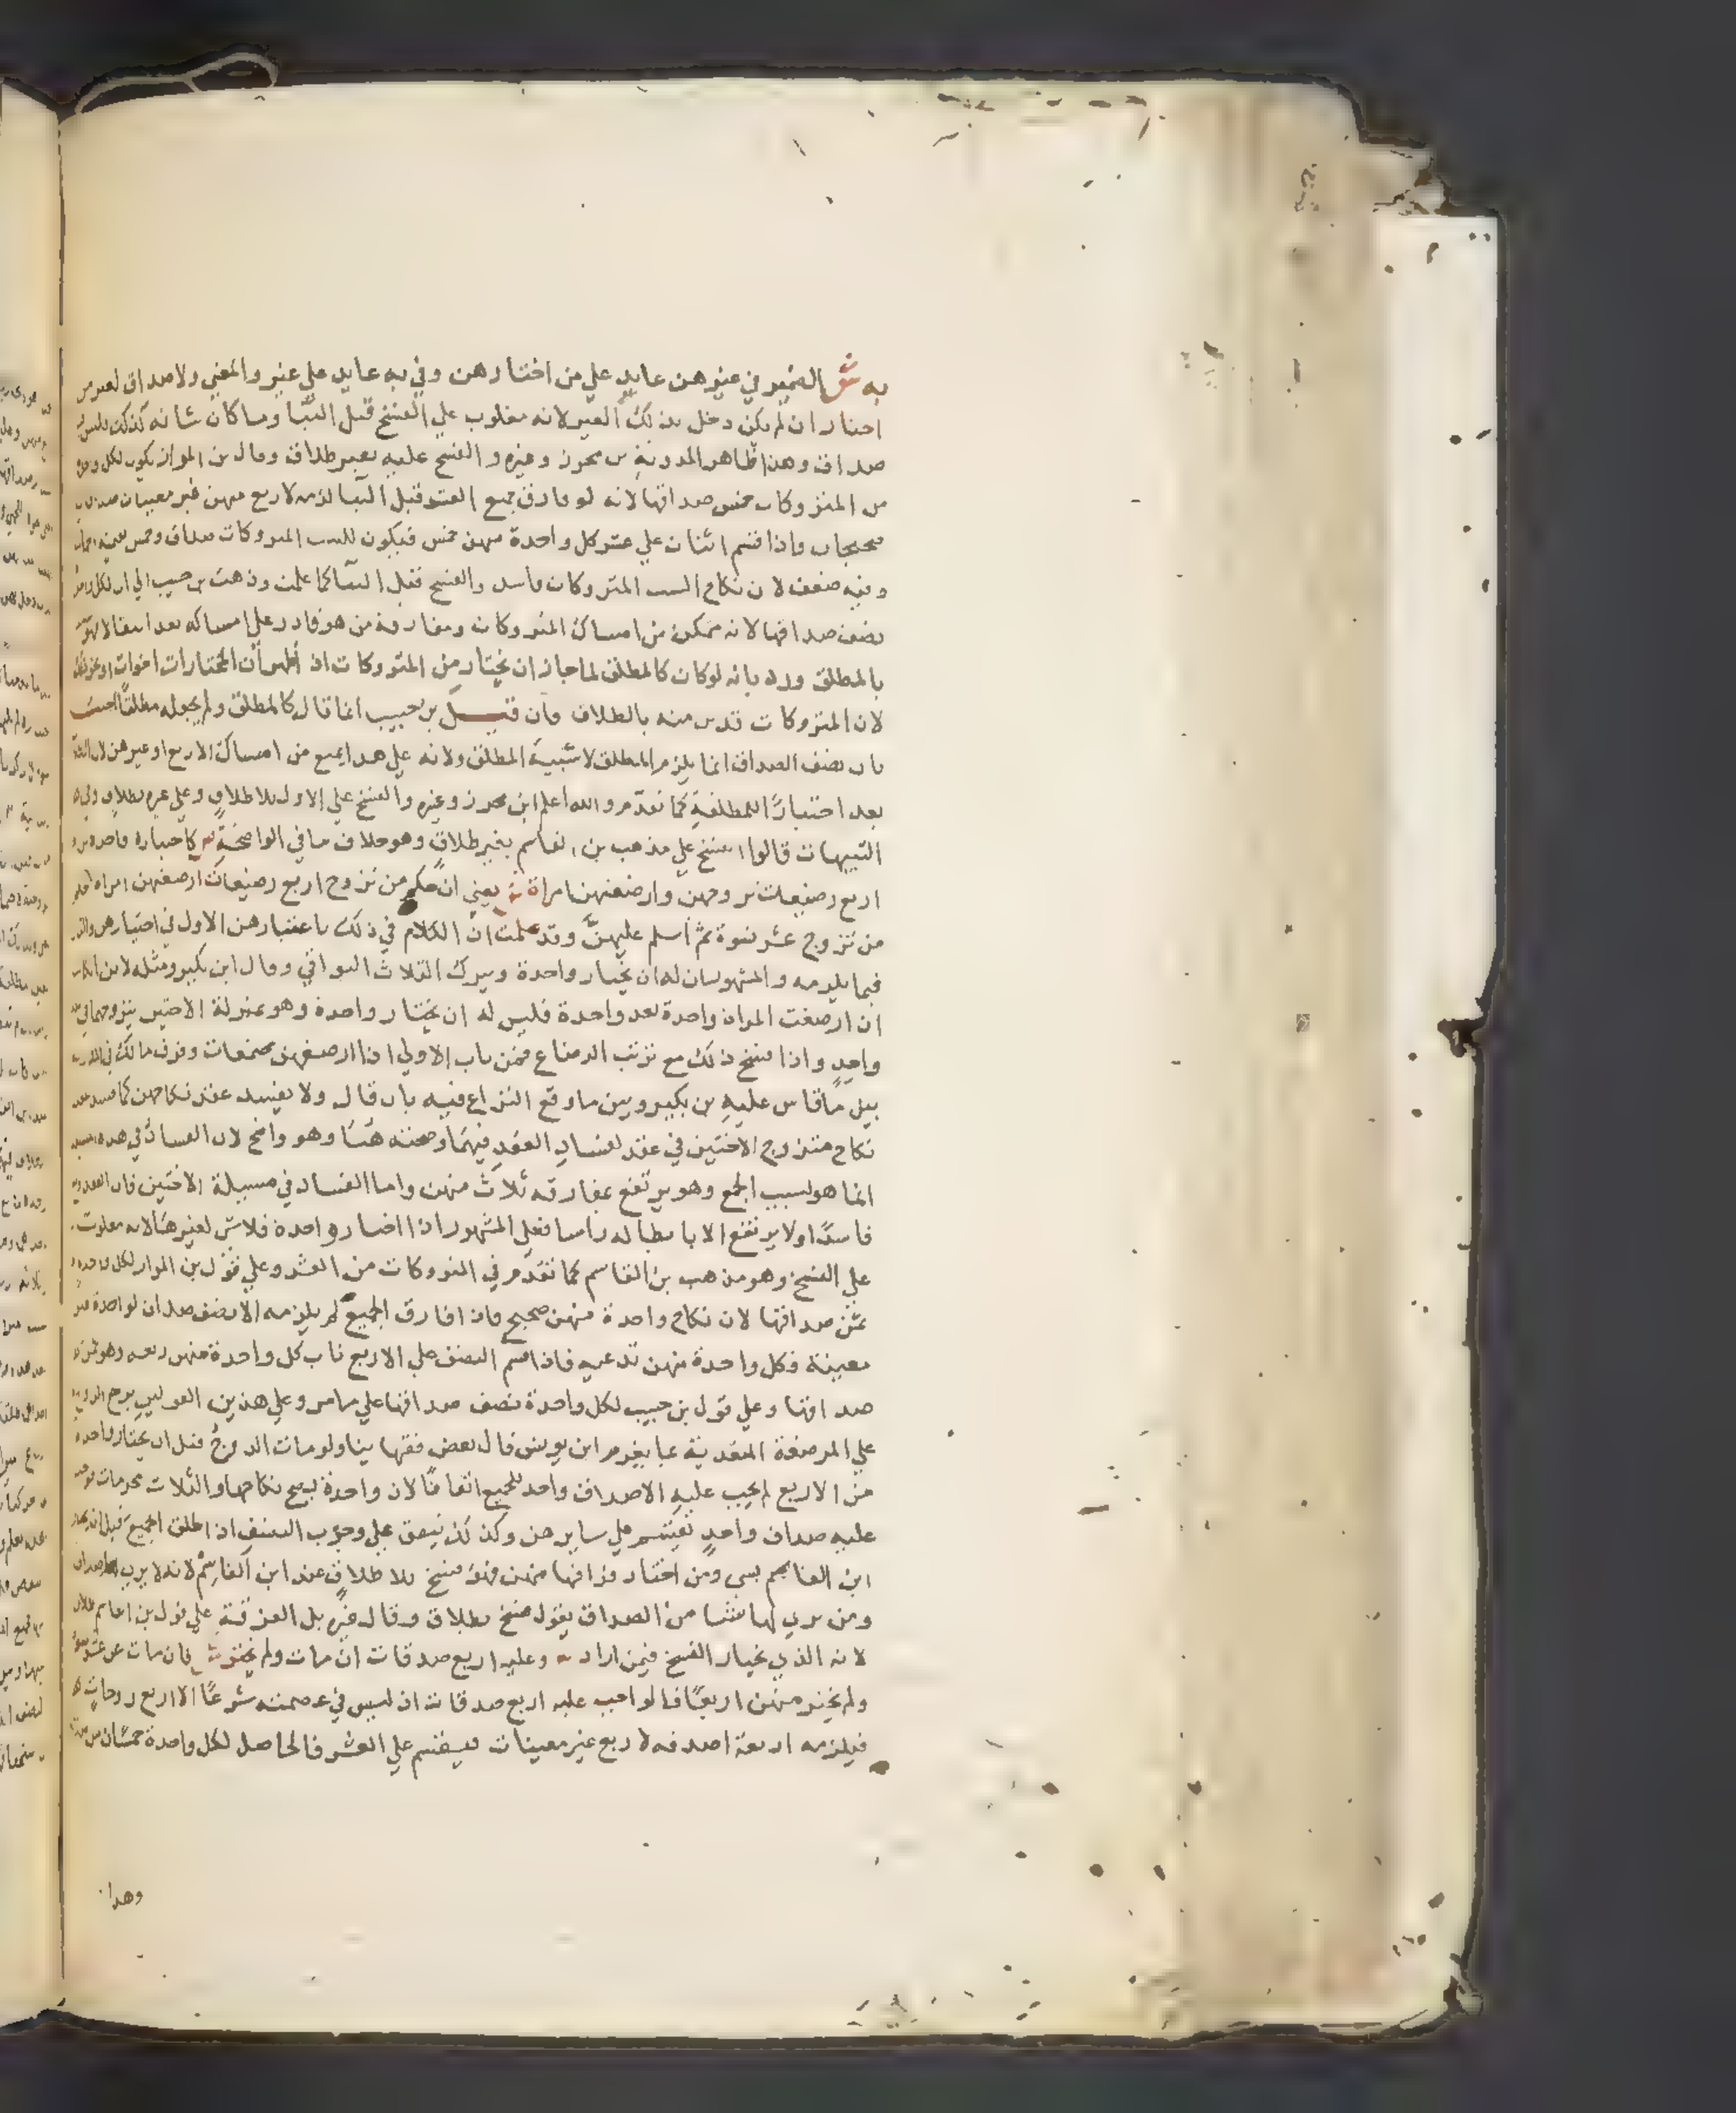 به ش الضمير في غيرهن عايد علي من اختارهن وفي به عايد علي غير والمعني ولا صداق لغير من
اختار ان لم يكن دخل بذلك الغير لانه مغلوب علي الفسخ قبل البنا وما كان شانه كذلك فليس
صداق وهذا ظاهر المدونة بن محرز وغيره والفسخ عليه بغير طلاق وقال بن المواز يكون لكل
من المتروكات خمس صداقها لانه لو فارق جميع العشر قبل البنا لزمه لاربع منهن غير معينات
صحيحات واذا قسم اثنان علي عشر كل واحدة منهن خمس فيكون للست المتروكات صداق وخمس
وفيه ضعف لان نكاح الست المتروكات فاسد والفسخ قبل البنا كما علمت وذهب بن حبيب الي ان لكل
نصف صداقها لانه ممكن من امساك المتروكات ومفارقة من هو قادر علي امساكه بعد
بالمطلق ورد بانه لو كان كالمطلق لما جاز ان يختار من المتروكات اذ اظهر ان المختارات اخوات
لان المتروكات قد بن منه بالطلاق فان قيل بن حبيب انما قال كالمطلق ولم يجعله مطلقا
بان نصف الصداق انما يلزم المطلق لا شبيه المطلق ولانه علي هذا يمنع من امساك الاربع او غيرهن
بعد اختيار المطلقة كما تقدم والله اعلم ابن محرز وغيره والفسخ علي الاول بلا طلاق وعلي غيره بطلاق وفي
التنبيهات قالوا الفسخ علي مذهب بن القاسم بغير طلاق وهو خلاف ما في الواضحة كاختياره واحدة من
اربع رضيعات تزوجهن وارضعتهن امراة ش يعني ان حكم من تزوج اربع رضيعات ارضعتهن امراة
من تزوج عشر نسوة ثم اسلم عليهن وقد علمت ان الكلام في ذلك باعتبارهن الاول في اختيارهن
فيما يلزمه والمشهور ان له ان يختار واحدة ويترك الثلاث البواقي وقال ابن بكير ومثله لابن
ان ارضعت المراة واحدة بعد واحدة فليس له ان يختار واحدة وهو بمنزلة الاختين يتزوجهما في
واحد واذا فسخ ذلك مع ترتب الرضاع فمن باب الاولي اذا ارضعتهن وفرق مالك في
بين ما قاس عليه بن بكير وبين ما وقع النزاع فيه بان قال ولا يفسد عقد نكاحهن كما فسد
نكاح متزوج الاختين في عقد لفساد العقد فيهما وصحته هنا وهو واضح لان الفساد في هذه
انما هو لسبب الجمع وهو يرتفع بمفارقة ثلاث منهن واما الفساد في مسيلة الاختين فان العقد
فاسدا ولا يرتفع الا بابطاله راسا فعلي المشهور اذا اختار واحدة فلا شي لغيرها لانه مغلوب
علي الفسخ وهو مذهب بن القاسم كما تقدم في المتروكات من العشر وعلي قول بن المواز لكل واحدة
ثمن صداقها لان نكاح واحدة منهن صحيح فاذا فارق الجميع لم يلزمه الا نصف صداق لواحدة غير
معينة وكل واحدة منهن تدعيه فاذا قسم النصف علي الاربع ناب كل واحدة منهن ربعه وهو ثمن
صداقها وعلي قول بن حبيب لكل واحدة نصف صداقها علي ما مر وعلي هذين القولين يرجع الزوج
علي المرضعة المتعدية بما يغرم ابن يونس قال بعض فقهاينا ولو مات الزوج قبل ان يختار واحدة
من الاربع لم يجب عليه الا صداق واحد للجميع اتفاقا لان واحدة يصح نكاحها والثلاث محرمات
عليه صداق واحد يقتسم علي سايرهن وكذلك يتفق علي وجوب النصف اذا طلق الجميع قبل ان يختار
ابن القاسم بشي ومن اختار فراقها منهن فهو فسخ بلا طلاق عند ابن القاسم لانه لا يري لها
ومن يري لها شيا من الصداق يقول فسخ بطلاق وقال غيره بل الفرقة علي قول بن القاسم طلاق
لانه الذي يختار الفسخ فيمن اراد وعليه اربع صدقات ان مات ولم يختر ش فان مات عن عشر
ولم يختر منهن اربعا فالواجب عليه اربع صدقات اذ ليس في عصمته شرعا الا اربع زوجات
فيلزمه اربعة اصدقه لاربع غير معينات فيقسم علي العشر فالحاصل لكل واحدة خمسان من
وهذا